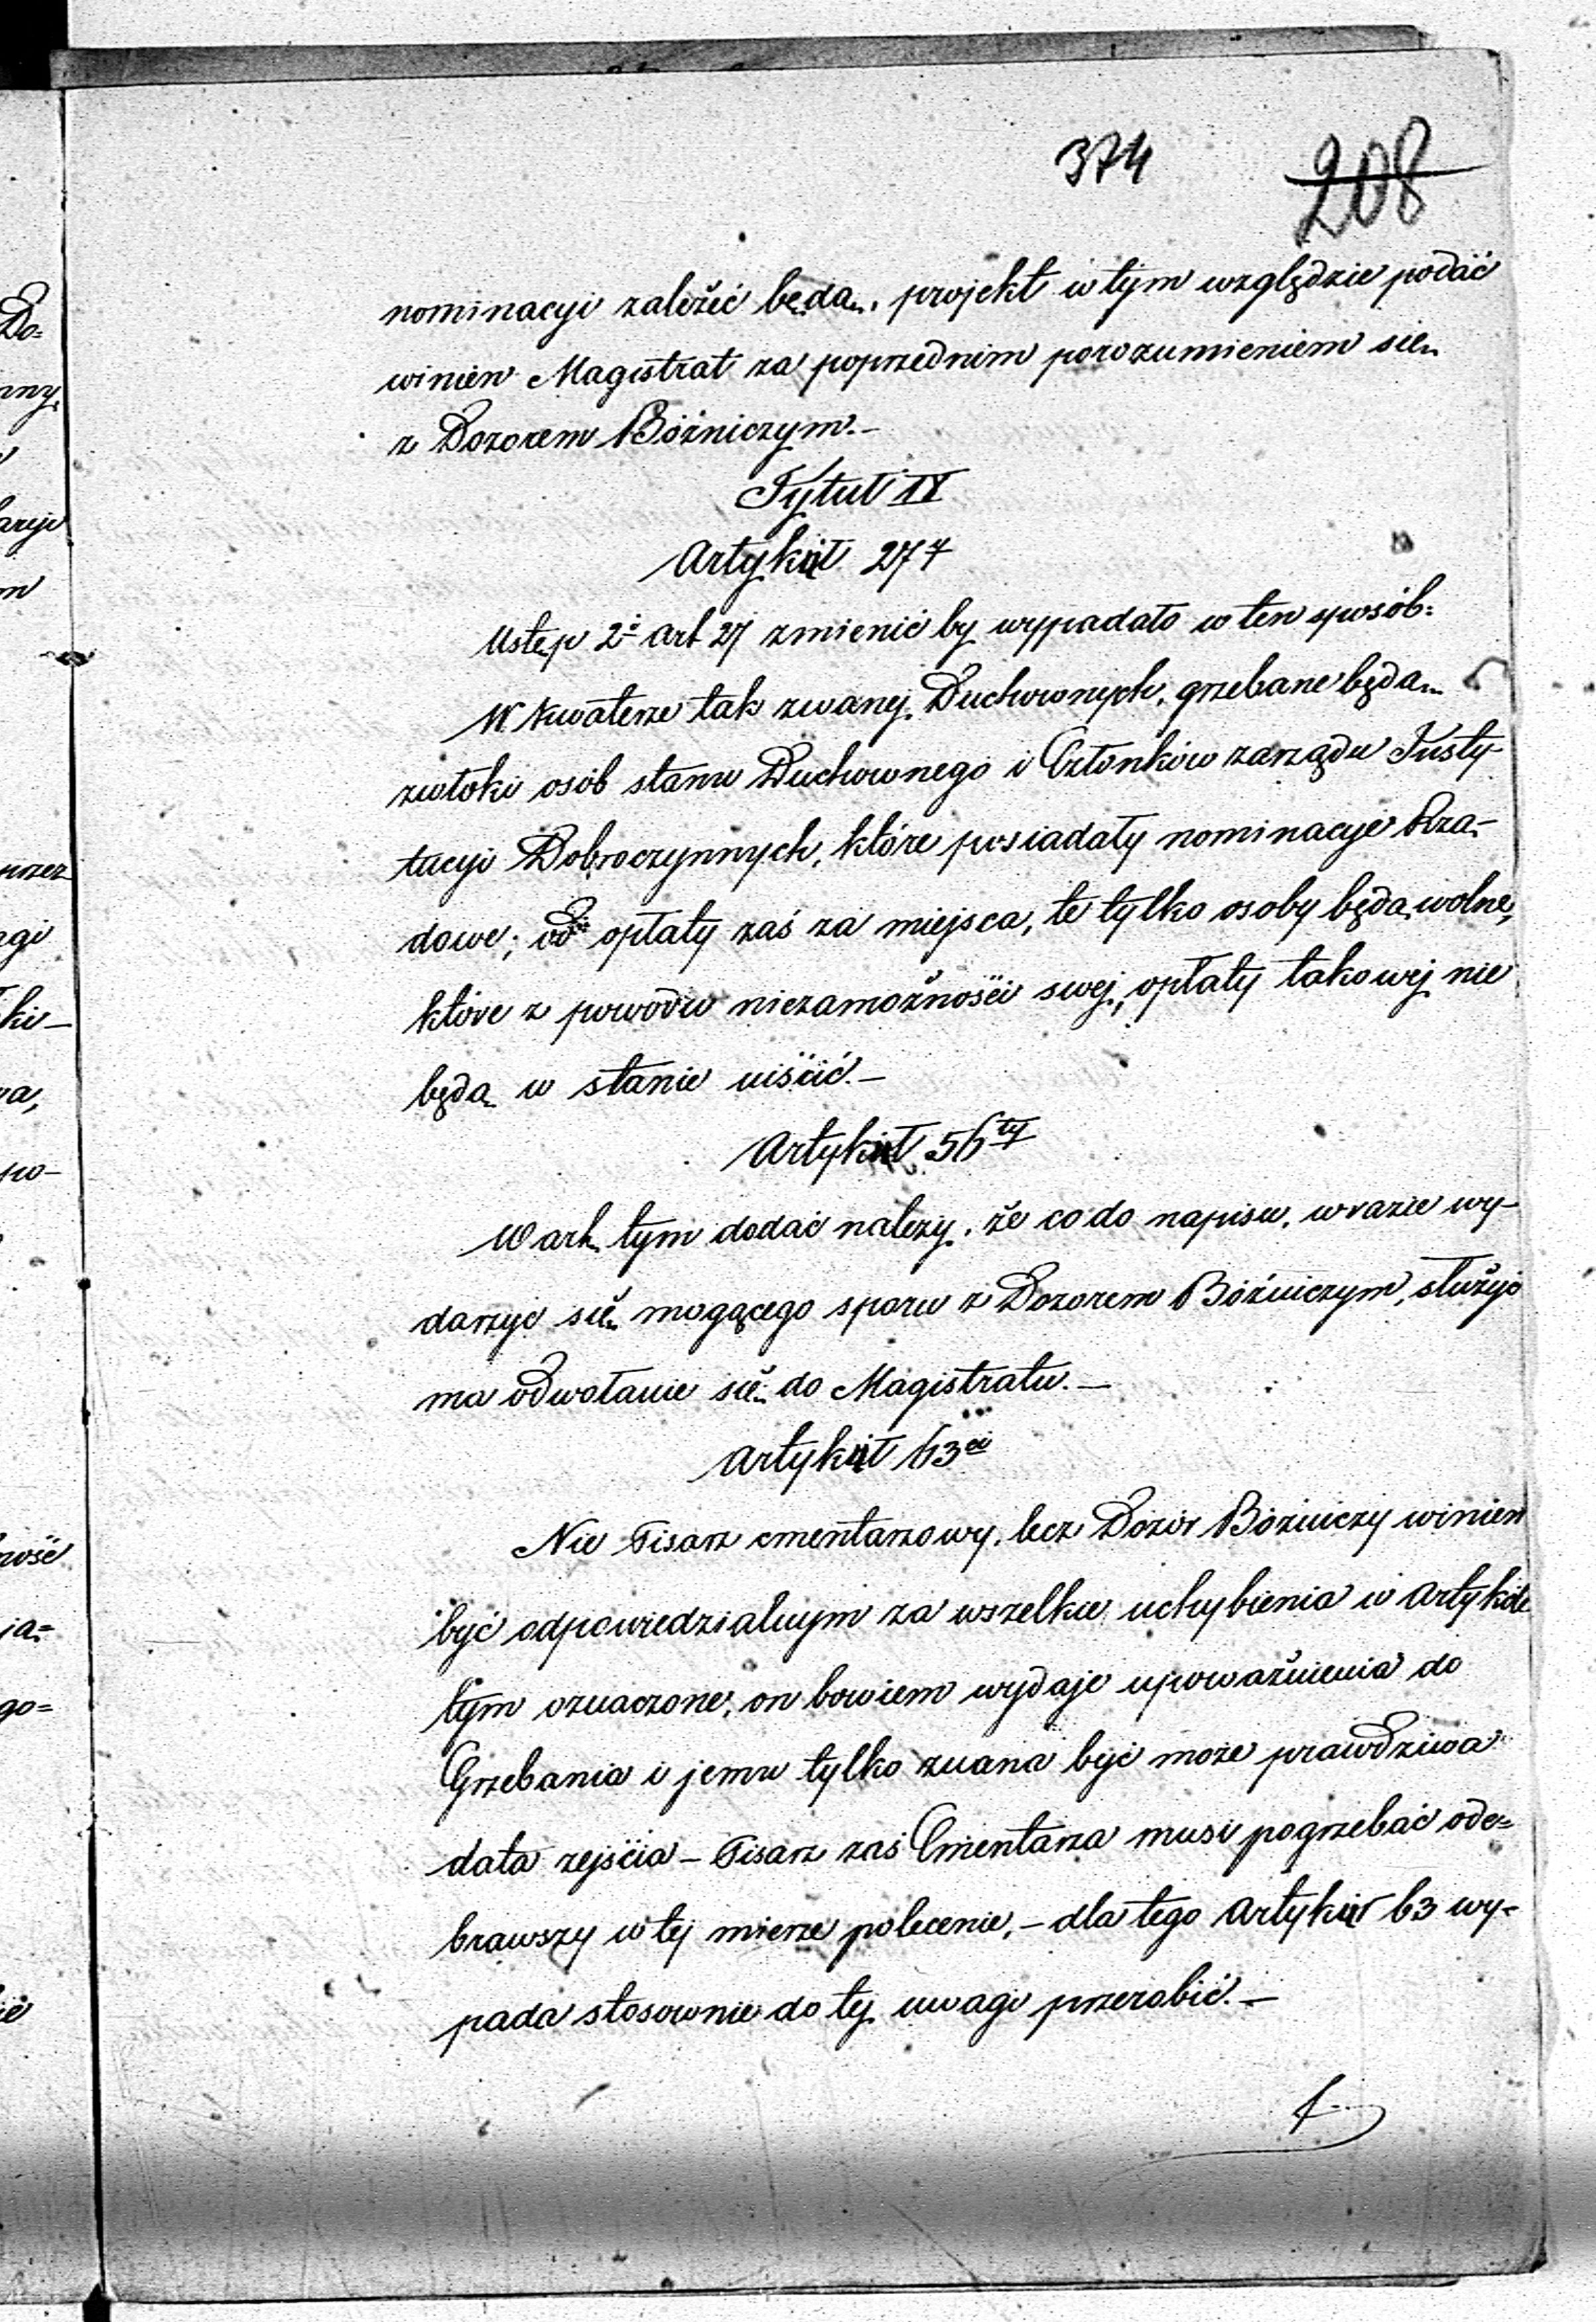 374 208
nominacyi zależeć będą, projekt w tym względzie podać
winien Magistrat za poprzednim porozumieniem się
z Dozorem Bóżniczym.-
Tytuł IV
Artykuł 27
Ustęp 2i art 27 zmienić by wypadało w ten sposób:
W Kwaterze tak zwanej Duchownych, grzebane będą
zwłoki osób stanu Duchownego i Członków zarządu Insty-
tucyi Dobroczynnych, które posiadały nominacyje Rzą-
dowe; od opłaty zaś za miejsca, te tylko osoby będą wolne,
które z powodu niezamożności swej, opłaty takowej nie
będą w stanie uiścić.-
Artykuł 56ty
W art. tym dodać należy, że co do napisu, w razie wy-
darzyć się mogącego sporu z Dozorem Bóżniczym, służyć
ma odwołanie się do Magistratu.-
Artykuł 63ci
Nie Pisarz cmentarzowy, lecz Dozór Bóżniczy winien
być odpowiedzialnym za wszelkie uchybienia w Artykule
tym oznaczone, on bowiem wydaje upoważnienia do
Grzebania i jemu tylko znana być może prawdziwa
data zejścia - Pisarz zaś Cmentarza musi pogrzebać ode=
brawszy w tej mierze polecenie, - dla tego Artykuł 63 wy-
pada stosownie do tej uwagi przerobić.-